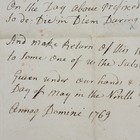 On the Day above Prefixed
So do. Fie in Diem Daring
And make Return of this W
to some one of us the Subs
Given under our hands &
Day of May in the Ninth
Annoq Domine 1769